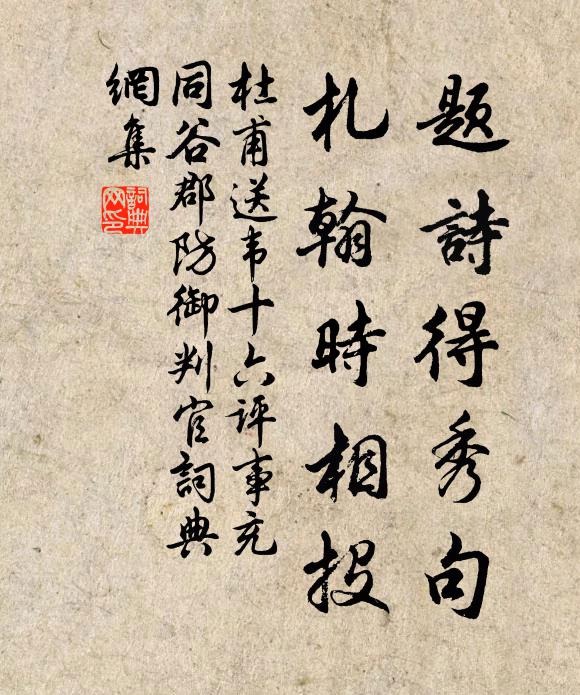 題詩得秀句
札翰時相投
杜甫送韦十六評事充
同谷郡防御判官詞典
網集
詞典
网印